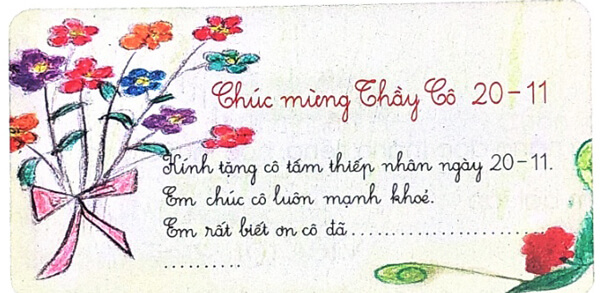 Chúc mừng Thầy Cô 20-11
Kính tặng cô tấm thiếp nhân ngày 20-11.
Em chúc cô luôn mạnh khoẻ.
Em rất biết ơn cô đã..............................
..........